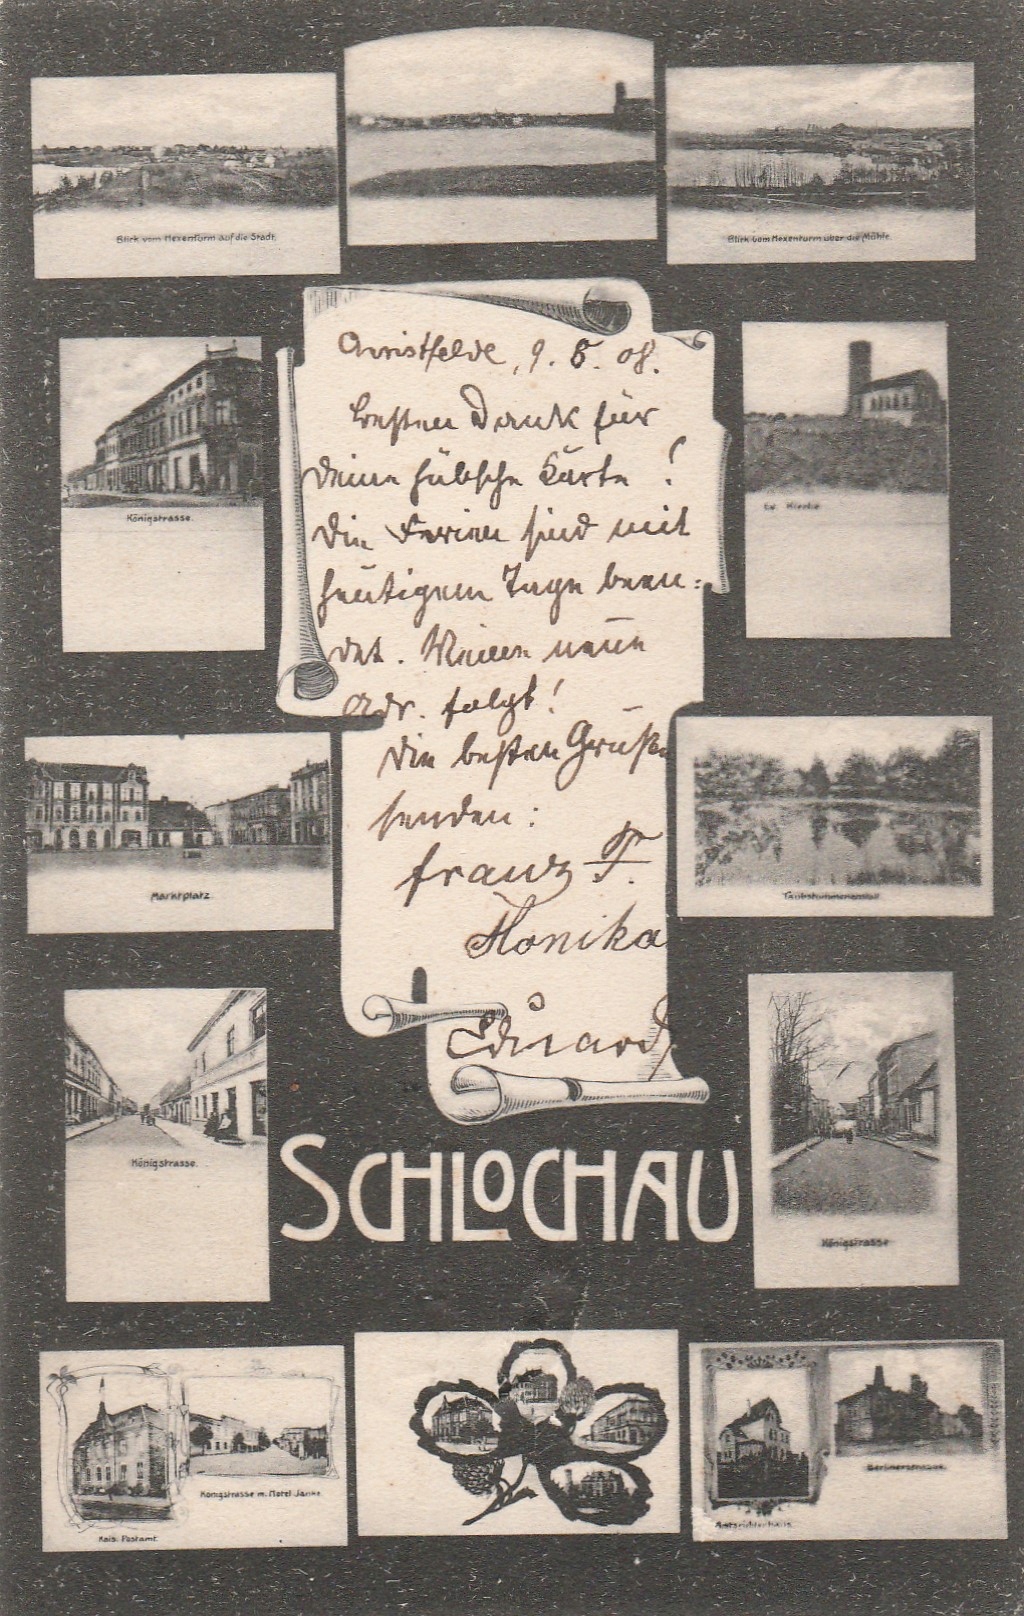 Blick vom Hexenturm auf die Stadt.
Blick vom Hexenturm über die Mühle.
Christfelde, 9. 8. 08.
Besten Dank für
Deine hübsche Karte!
Die Ferien sind mit
heutigem Tage been:
det. Meine neue
Adr. folgt!
Die besten Grüße
senden:
Franz T.
Monika
Eduard
Königstrasse.
Ev. Kirche
Marktplatz.
Taubstummenanstalt
Königstrasse.
SCHLOCHAU
Königstrasse
Kais. Postamt.
Königstrasse m. Hotel Janke.
Amtsrichterhaus.
Berlinerstrasse.